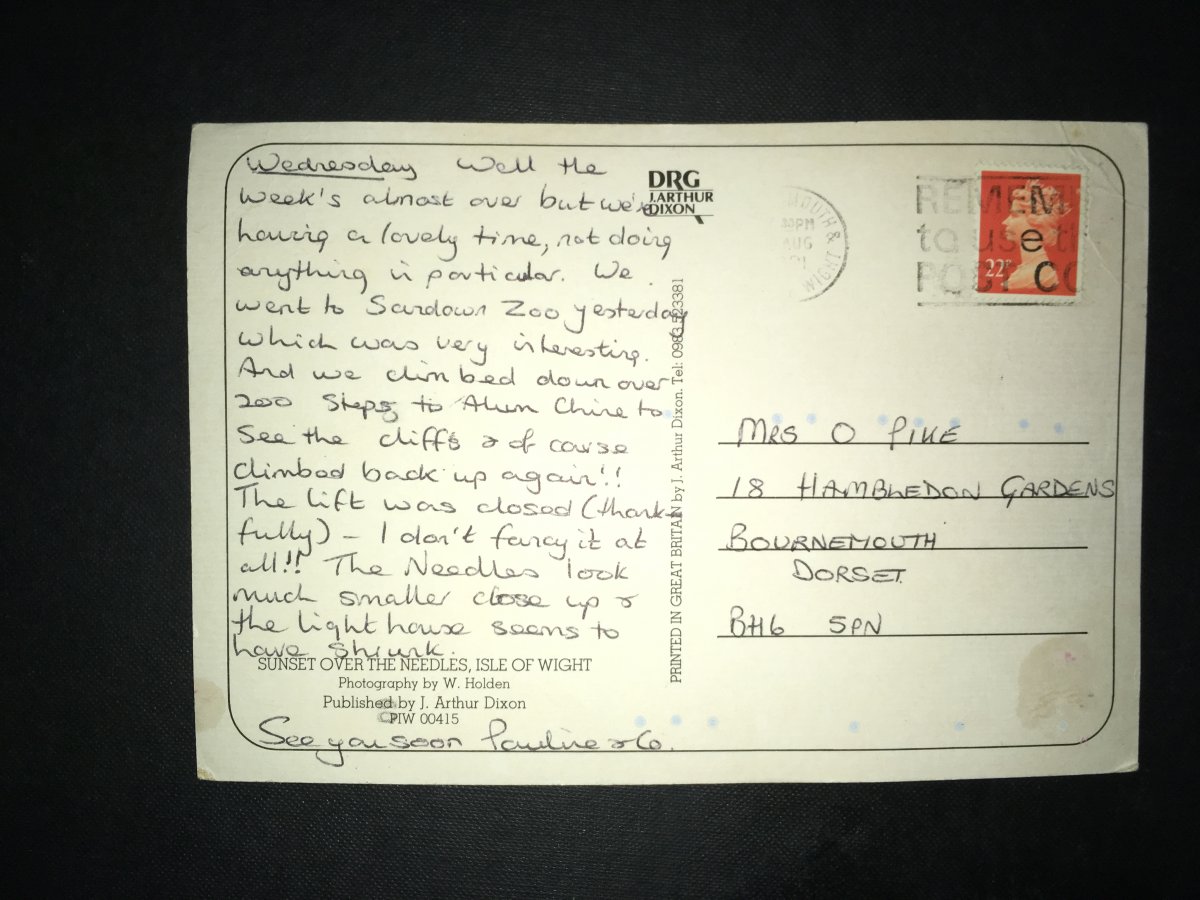 Wednesday Well the
week's almost over but we're
having a lovely time, not doing
anything in particular. We
went to Sandown Zoo yesterday
which was very interesting.
And we climbed down over
200 Steps to Alum Chine to
see the cliffs & of course
climbed back up again!!
The lift was closed (thank-
fully) - I don't fancy it at
all!! The Needles look
much smaller close up &
the lighthouse seems to
have shrunk.
SUNSET OVER THE NEEDLES, ISLE OF WIGHT
Photography by W. Holden
Published by J. Arthur Dixon
PIW 00415
See you soon Pauline & Co.
DRG
J.ARTHUR
DIXON
PRINTED IN GREAT BRITAIN by J. Arthur Dixon. Tel: 0983 523381
OUTH &
30PM
AUG
WIGHT
REMEM
to use t
POST CO
22P
MRS O PIKE
18 HAMBLEDON GARDENS
BOURNEMOUTH
DORSET
BH6 5PN